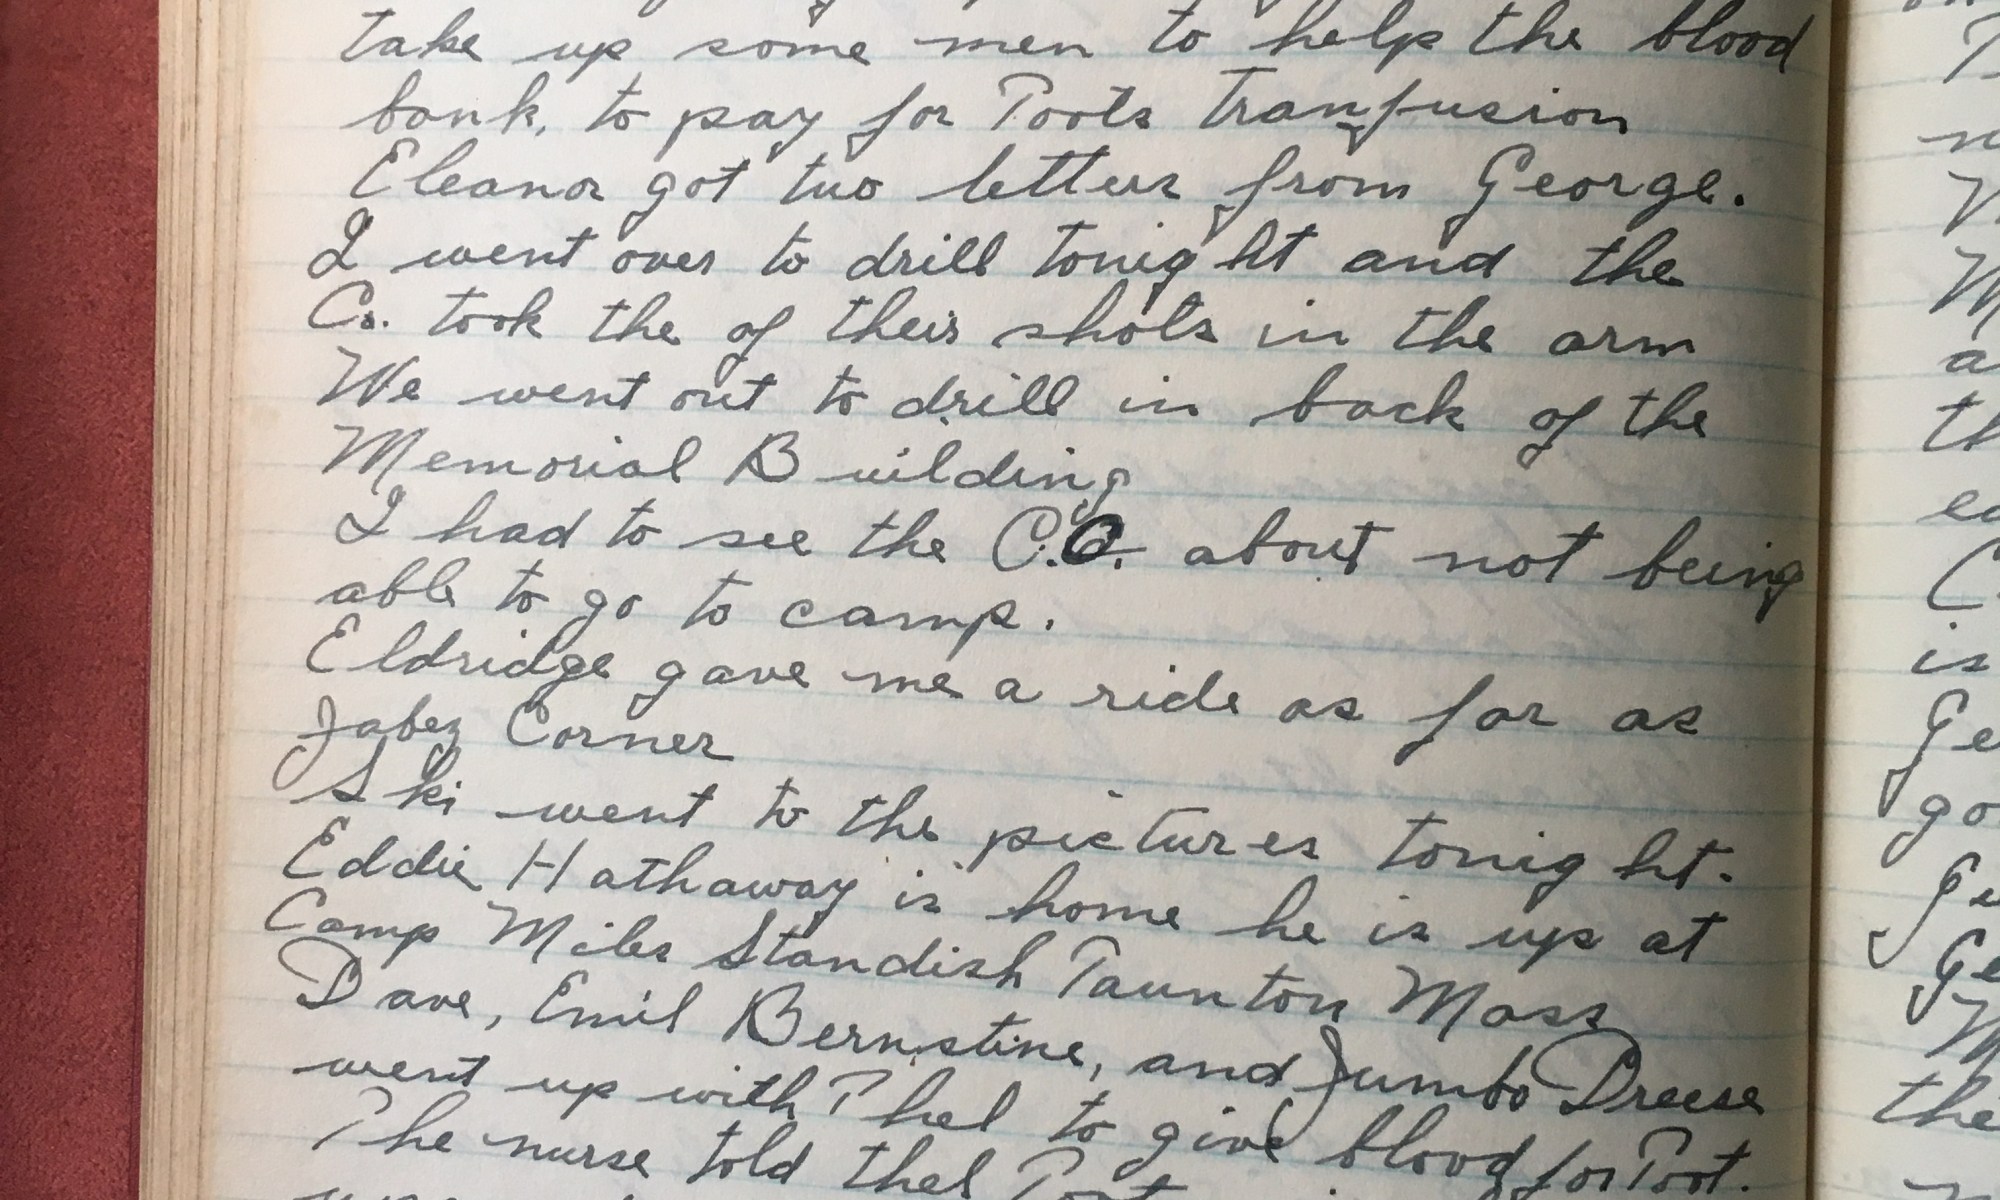 take up some men to help the blood
bank, to pay for Toots Tranfusion
Eleanor got two letters from George.
I went over to drill tonight and the
Co. took the of their shots in the arm
We went out to drill in back of the
Memorial Building
I had to see the C.O. about not being
able to go to camp.
Eldridge gave me a ride as far as
Jabez Corner
Ski went to the pictures tonight.
Eddie Hathaway is home he is up at
Camp Miles Standish Taunton Mass
Dave, Emil Bernstine, and Jumbo Dreese
went up with Thel to give blood for Toot.
The nurse told thel Toot